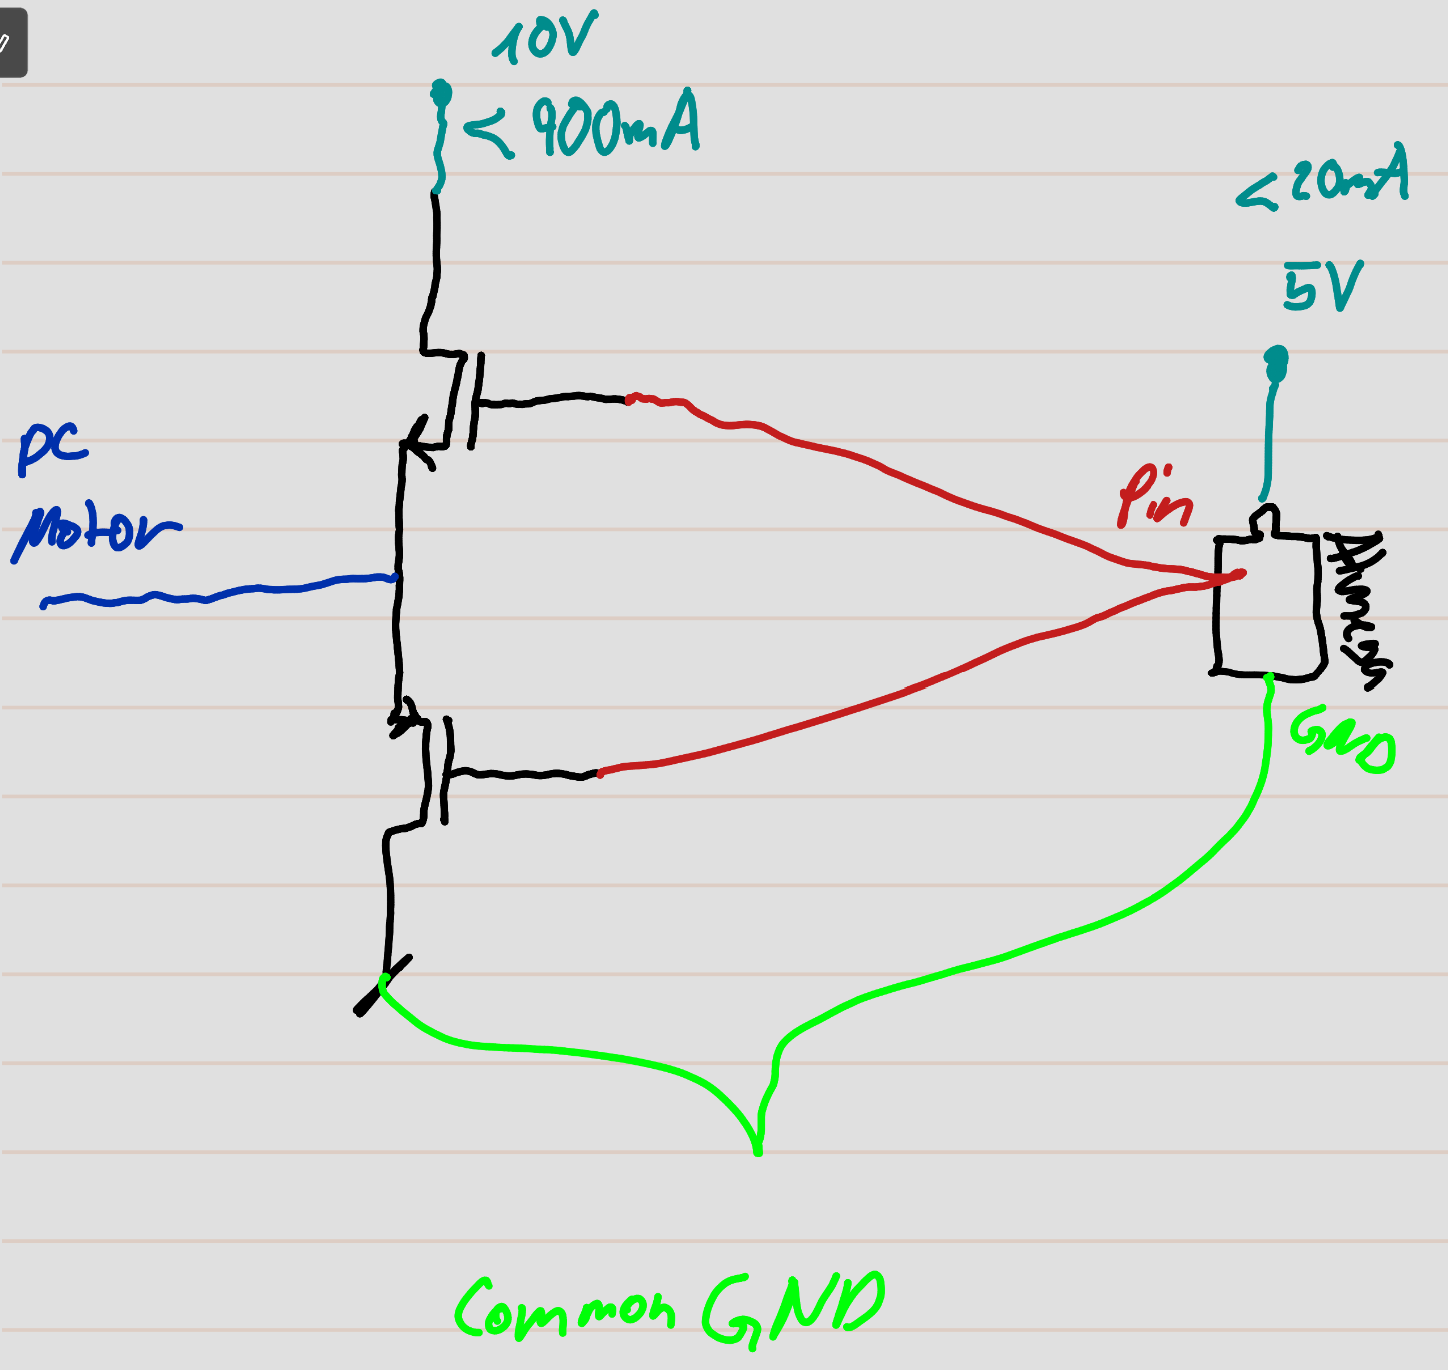 10V
< 900mA
< 20mA
5V
DC
Motor
Pin
GND
Common GND